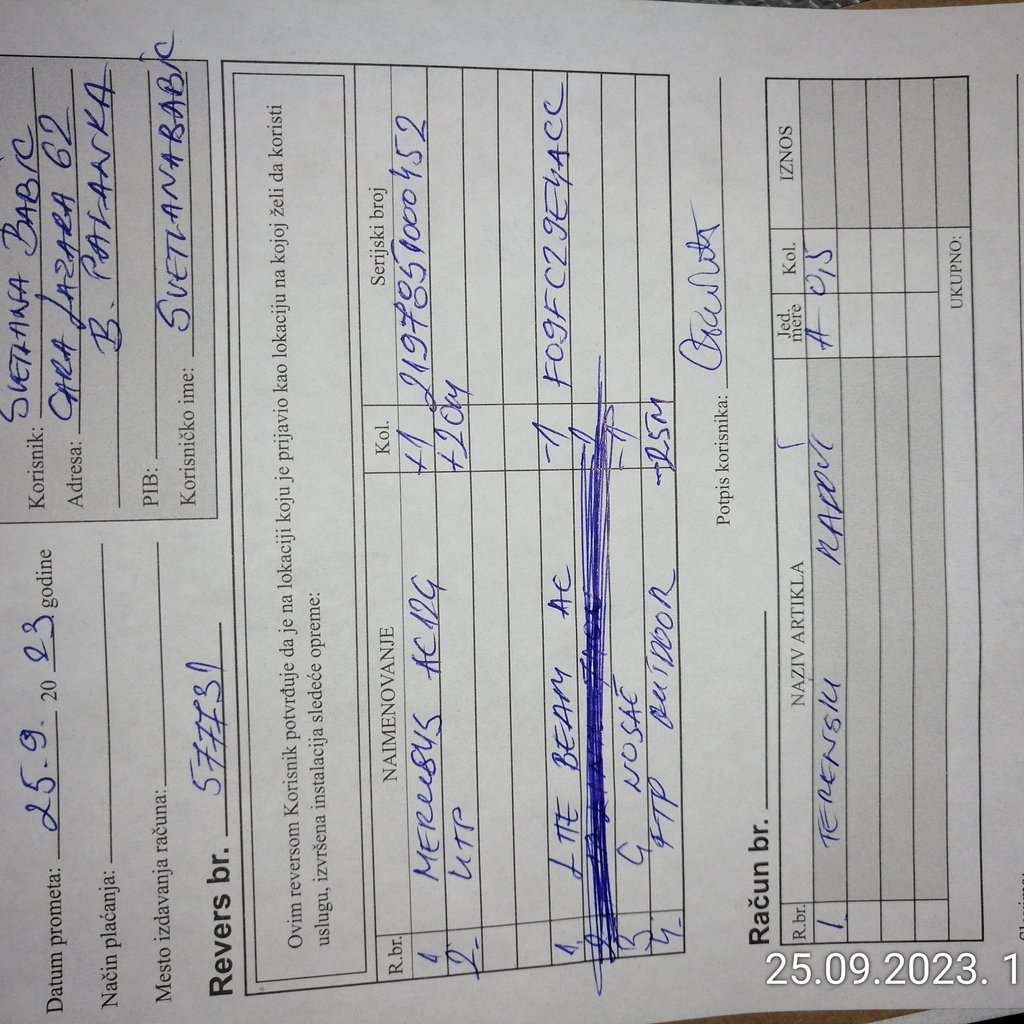 Korisnik: SVETLANA BABIĆ
Adresa: CARA LAZARA 62
B. PALANKA
PIB:
Korisničko ime: SVETLANABABIĆ
Datum prometa: 25.9. 2023 godine
Način plaćanja:
Mesto izdavanja računa:
Revers br. 577731
Ovim reversom Korisnik potvrđuje da je na lokaciji koju je prijavio kao lokaciju na kojoj želi da koristi
uslugu, izvršena instalacija sledeće opreme:
R.br. NAIMENOVANJE Kol. Serijski broj
1 MERCUSYS AC12G +1 2197851000452
2. UTP +20M
1. LITE BEAM AC -1 F09FC29E4ACC
-1
3 G NOSAČ -1
4. FTP OUTDOOR -25M
Potpis korisnika:
Račun br.
R.br. NAZIV ARTIKLA Jed. mere Kol. IZNOS
1. TERENSKI RADOVI A 0,5
UKUPNO:
25.09.2023. 1